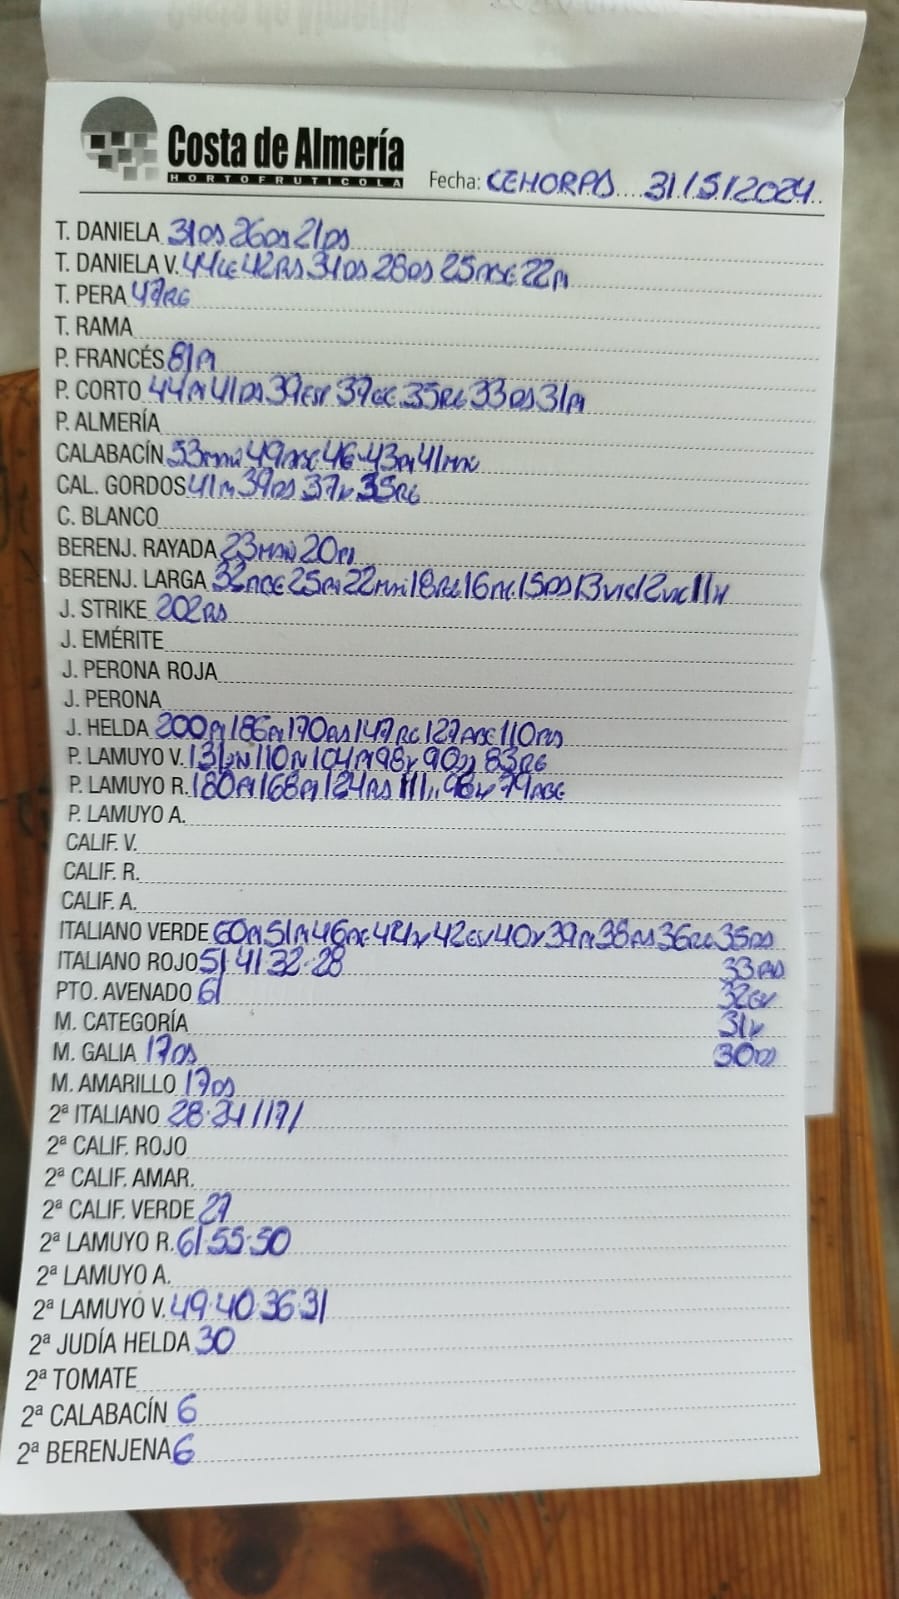 Costa de Almería
HORTOFRUTICOLA
Fecha: CEHORPA 31/5/2024
T. DANIELA 31DS 26DS 21DS
T. DANIELA V. 44 42 31DS 28DS 25 22M
T. PERA 47RG
T. RAMA
P. FRANCÉS 81M
P. CORTO 44M 41DS 39 37 35RG 33DS 31M
P. ALMERÍA
CALABACÍN 53 49 46-43M 41
CAL. GORDOS 41M 39DS 37V 35RG
C. BLANCO
BERENJ. RAYADA 23MAN 20M
BERENJ. LARGA 32 25M 22 18RG 16 15DS 13 12 11M
J. STRIKE 202
J. EMÉRITE
J. PERONA ROJA
J. PERONA
J. HELDA 200M 186M 170 147RG 127 110
P. LAMUYO V. 131 110 104M 98V 90 83RG
P. LAMUYO R. 180M 168M 124 111 98V 79
P. LAMUYO A.
CALIF. V.
CALIF. R.
CALIF. A.
ITALIANO VERDE 60M 51M 46 42 40V 39M 38 36RG 35DS
ITALIANO ROJO 51 41-32-28 33
PTO. AVENADO 61 32
M. CATEGORÍA 31V
M. GALIA 17DS 30DS
M. AMARILLO 17DS
2ª ITALIANO 28-24/17/
2ª CALIF. ROJO
2ª CALIF. AMAR.
2ª CALIF. VERDE 27
2ª LAMUYO R. 61 55-50
2ª LAMUYO A.
2ª LAMUYO V. 49-40-36-31
2ª JUDÍA HELDA 30
2ª TOMATE
2ª CALABACÍN 6
2ª BERENJENA 6